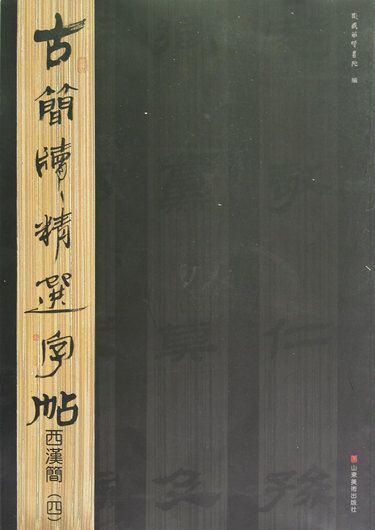 古簡牘精選字帖
西漢簡（四）
編
山東美術出版社